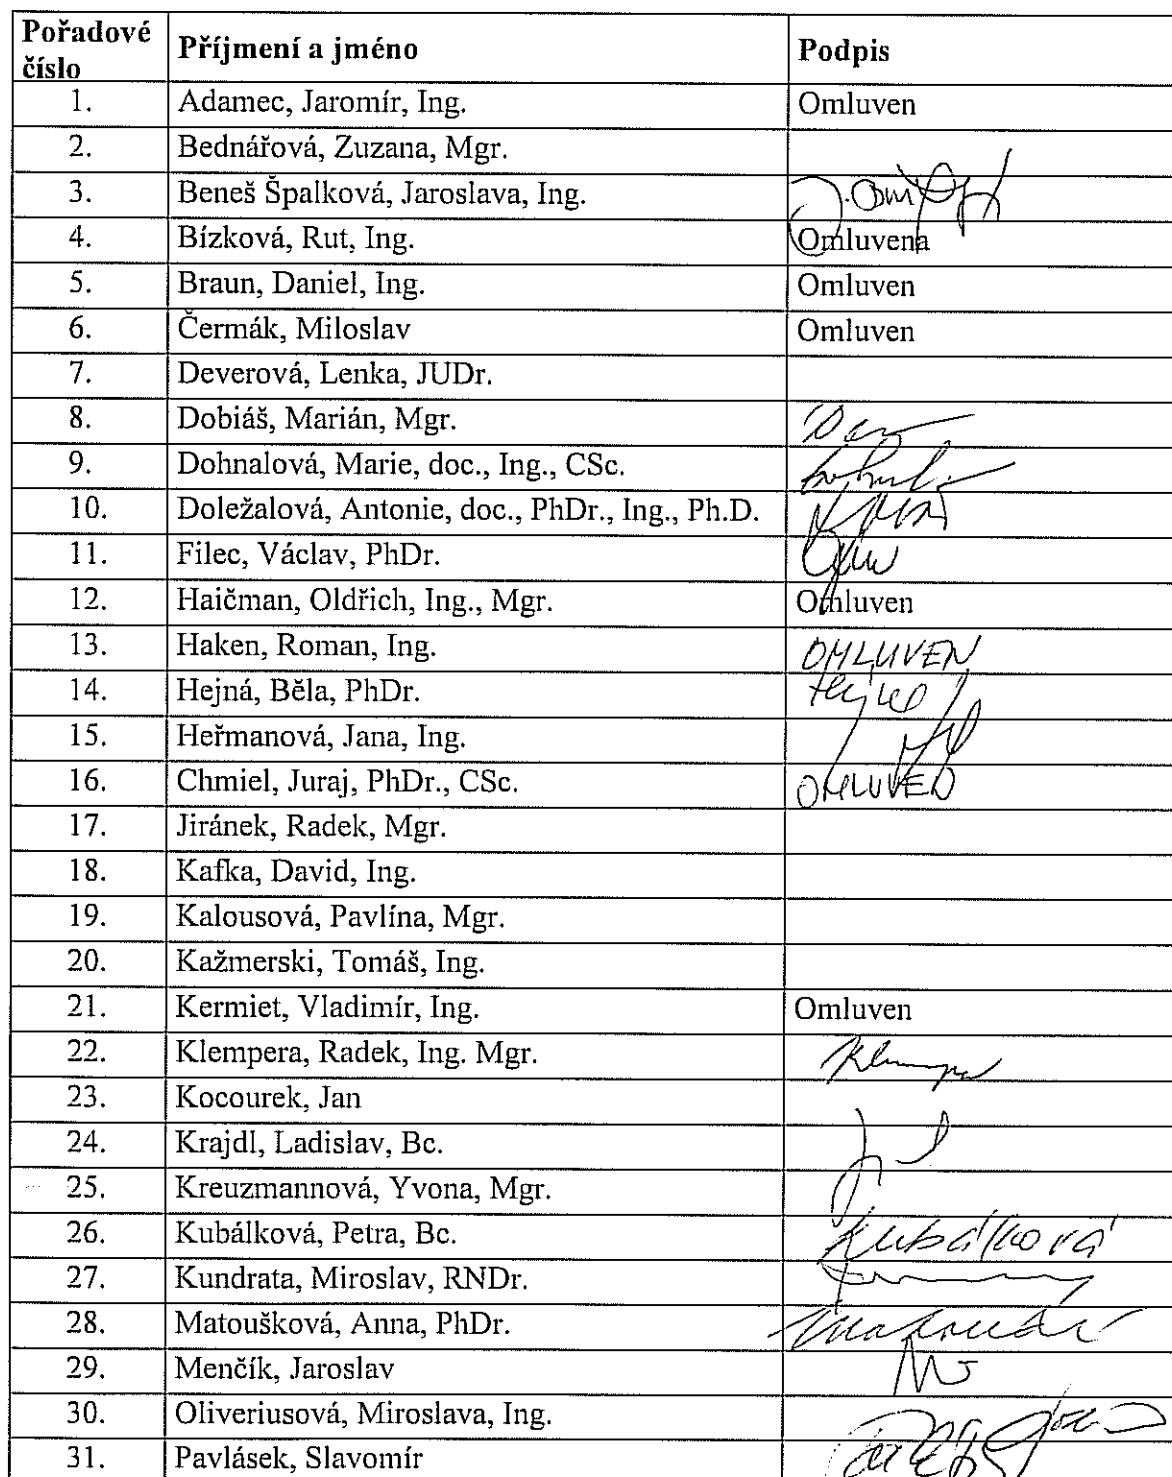 Pořadové číslo Příjmení a jméno Podpis
1. Adamec, Jaromír, Ing. Omluven
2. Bednářová, Zuzana, Mgr.
3. Beneš Špalková, Jaroslava, Ing.
4. Bízková, Rut, Ing. Omluvena
5. Braun, Daniel, Ing. Omluven
6. Čermák, Miloslav Omluven
7. Deverová, Lenka, JUDr.
8. Dobiáš, Marián, Mgr.
9. Dohnalová, Marie, doc., Ing., CSc.
10. Doležalová, Antonie, doc., PhDr., Ing., Ph.D.
11. Filec, Václav, PhDr.
12. Haičman, Oldřich, Ing., Mgr. Omluven
13. Haken, Roman, Ing. OMLUVEN
14. Hejná, Běla, PhDr.
15. Heřmanová, Jana, Ing.
16. Chmiel, Juraj, PhDr., CSc. OMLUVEN
17. Jiránek, Radek, Mgr.
18. Kafka, David, Ing.
19. Kalousová, Pavlína, Mgr.
20. Kažmerski, Tomáš, Ing.
21. Kermiet, Vladimír, Ing. Omluven
22. Klempera, Radek, Ing. Mgr.
23. Kocourek, Jan
24. Krajdl, Ladislav, Bc.
25. Kreuzmannová, Yvona, Mgr.
26. Kubálková, Petra, Bc. Kubálková
27. Kundrata, Miroslav, RNDr.
28. Matoušková, Anna, PhDr.
29. Menčík, Jaroslav
30. Oliveriusová, Miroslava, Ing.
31. Pavlásek, Slavomír